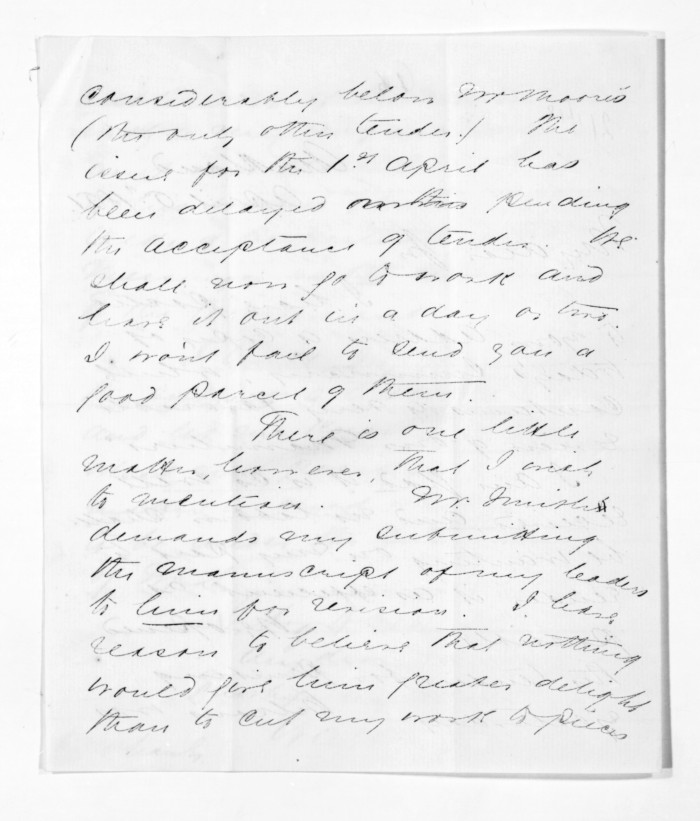 considerably below Mr Moore's
(the only other tender.) The
issue for the 1st April has
been delayed pending
the acceptance of tender. We
shall now go to work and
have it out in a day or two.
I won't fail to send you a
good parcel of them.
There is one little
matter, however, that I wish
to mention. Mr. Smith
demands my submitting
the manuscript of my leaders
to him for revision. I have
reason to believe that nothing
would give him greater delight
than to cut my work to pieces